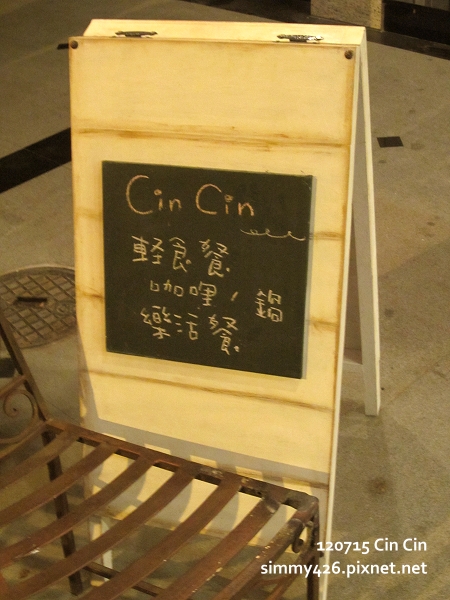 Cin Cin
軽食餐
咖哩，鍋
樂活餐
120715 Cin Cin
simmy426.pixnet.net